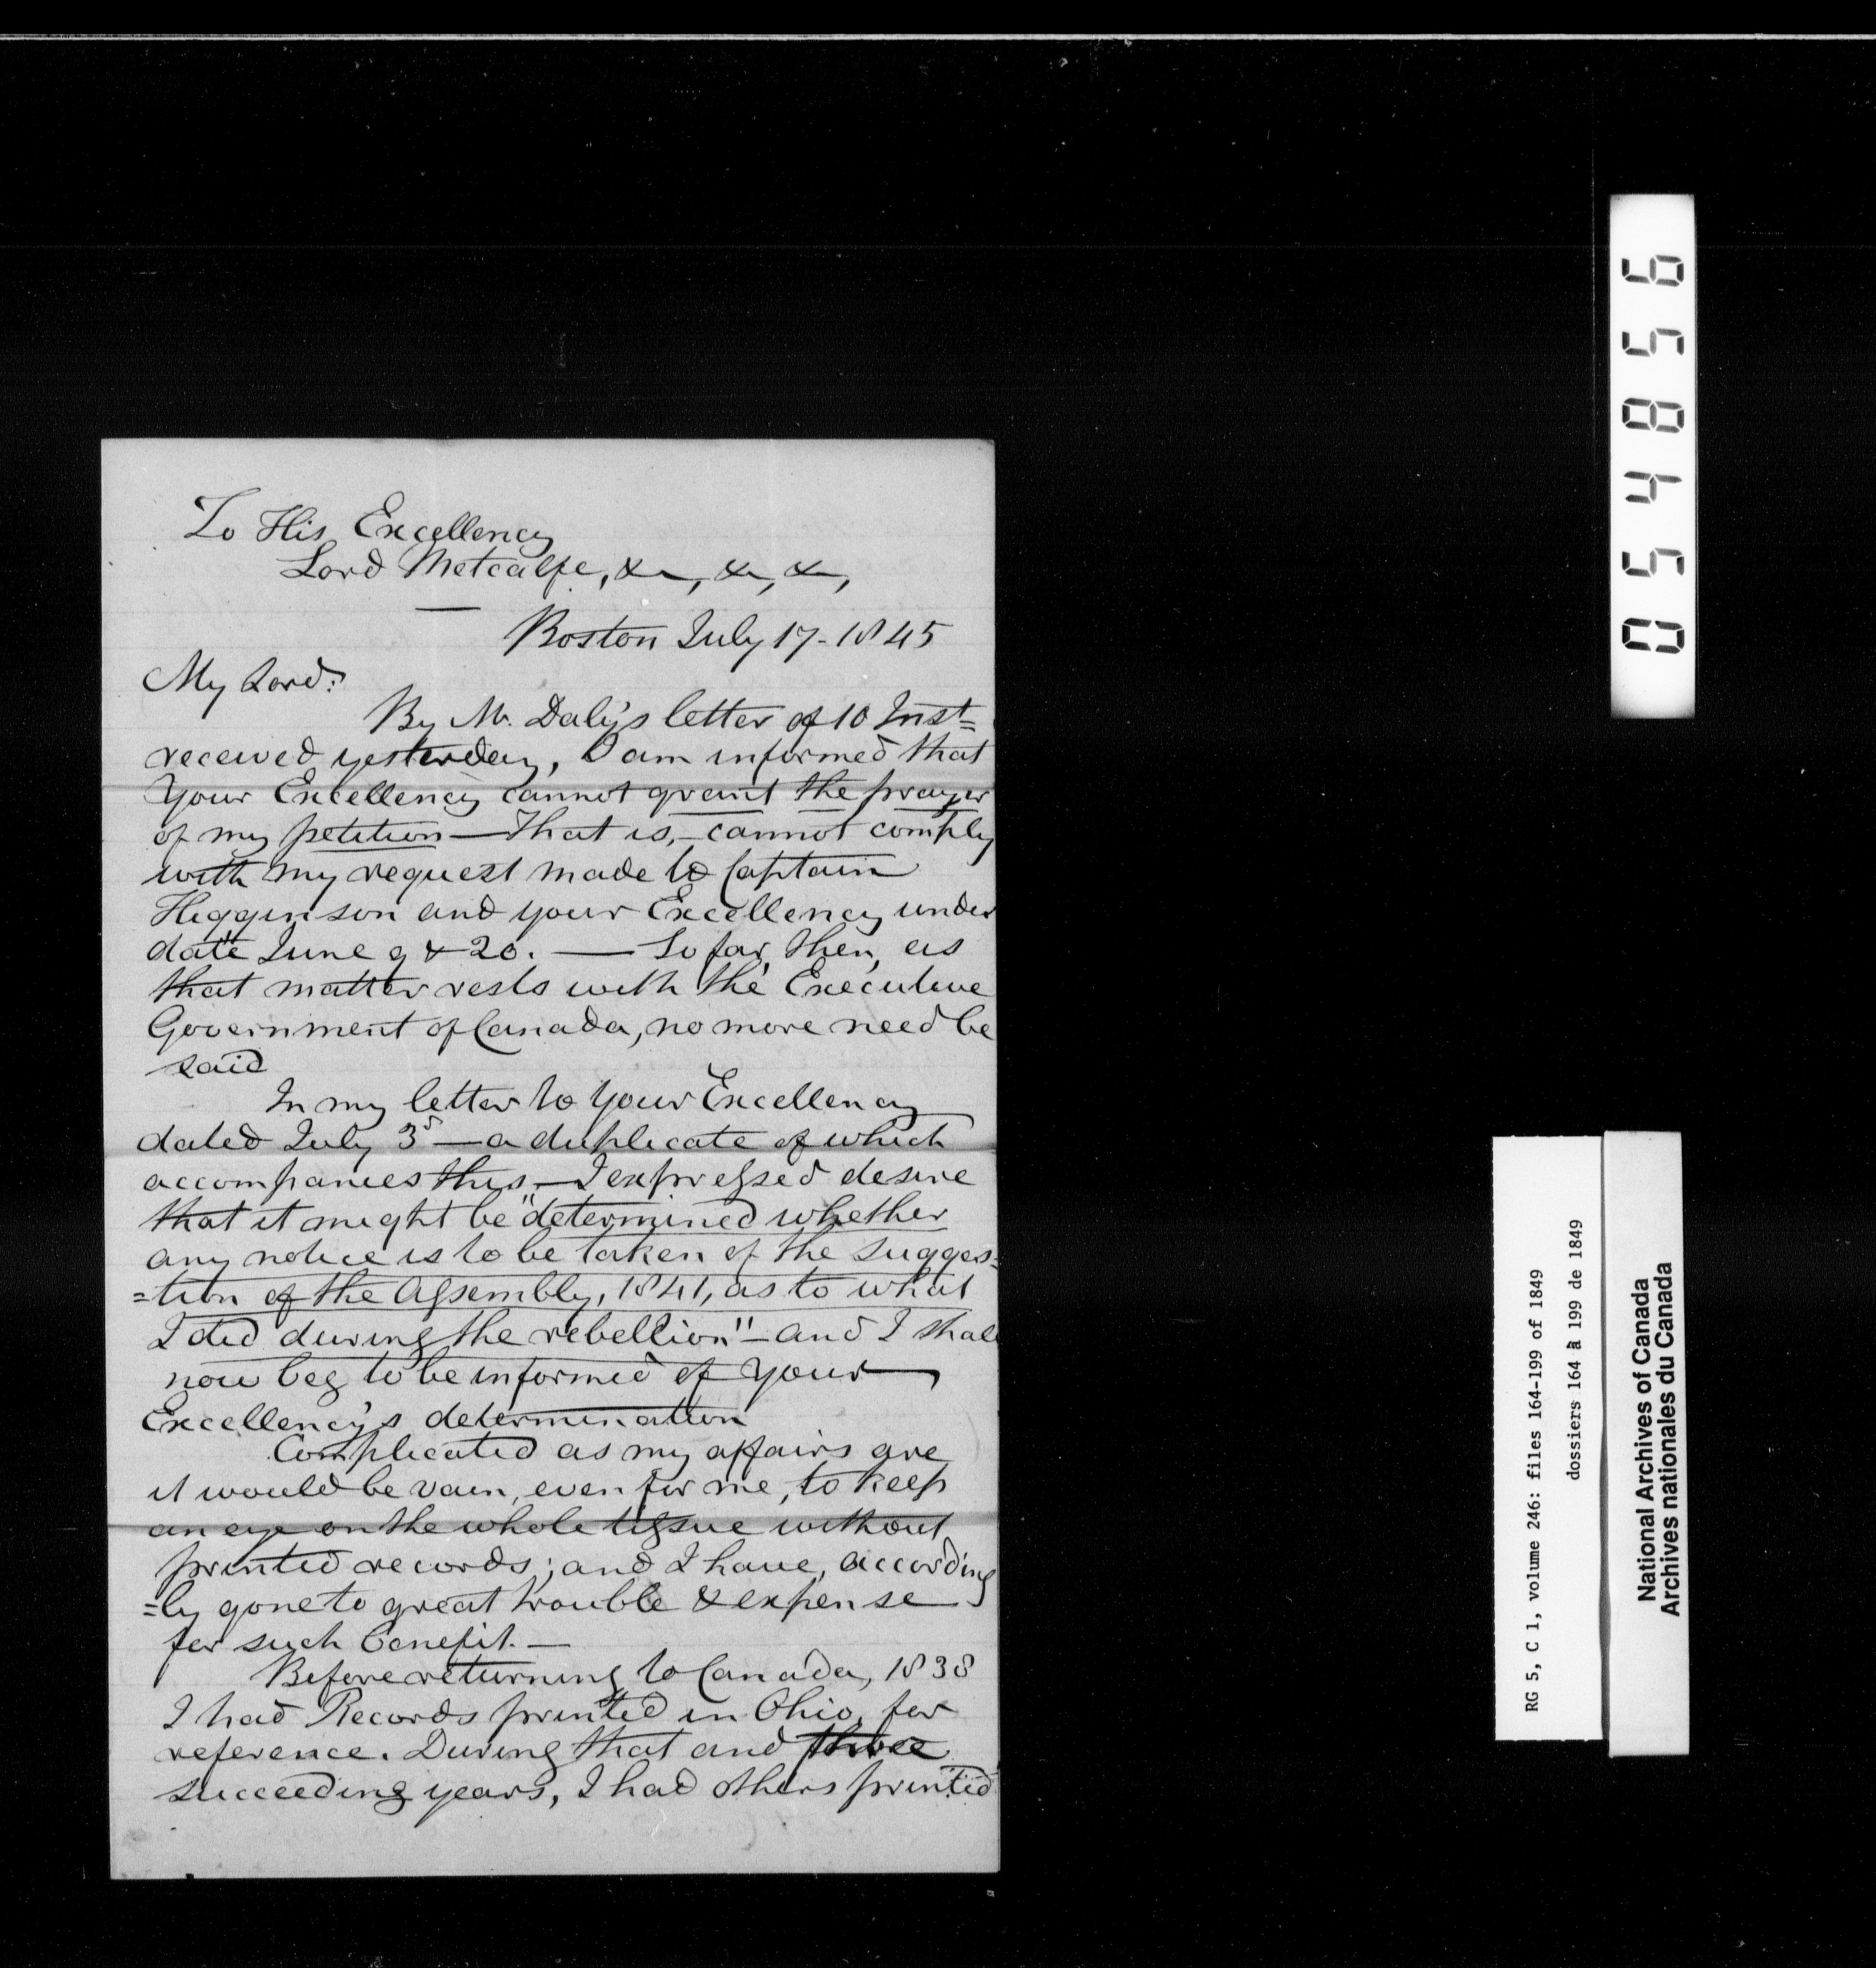 To His Excellency
Lord Metcalfe, &c, &c, &c,
Boston July 17 - 1845
My Lord:
By Mr. Daly's letter of 10 Inst=
received yesterday, I am informed that
Your Excellency cannot grant the prayer
of my petition — That is, — cannot comply
with my request made to Captain
Higginson and your Excellency under
date June 9 & 20. — So far, then, as
that matter rests with the Executive
Government of Canada, no more need be
said
In my letter to Your Excellency
dated July 3d — a duplicate of which
accompanies this — I expressed desire
that it might be "determined whether
any notice is to be taken of the sugges=
=tion of the Assembly, 1841, as to what
I did during the rebellion" — and I shall
now beg to be informed of Your
Excellency's determination
Complicated as my affairs are
it would be vain, even for me, to keep
an eye on the whole tissue without
printed records; and I have, according
=ly gone to great trouble & expense
for such benefit. —
Before returning to Canada, 1838
I had Records printed in Ohio, for
reference. During that and three
succeeding years, I had others printed
054856
RG 5, C 1, volume 246: files 164-199 of 1849
dossiers 164 à 199 de 1849
National Archives of Canada
Archives nationales du Canada